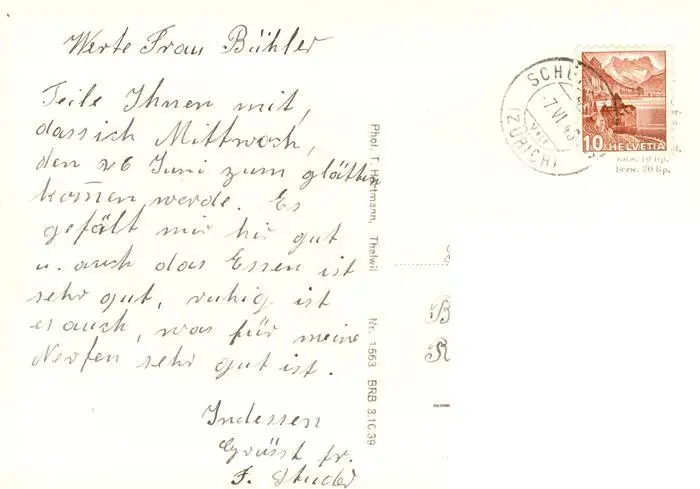 Werte Frau Bühler
Teile Ihnen mit,
dass ich Mittwoch,
den 26 Juni zum glätten
kom̄en werde. Es
gefält mir hir gut
u. auch das Essen ist
sehr gut, ruhig ist
es auch, was für meine
Nerfen sehr gut ist.
Indessen
Grüsst fr.
F. Studer
Phot. T. Hartmann, Thalwil Nr. 1563 BRB 3.10.39
SCHÖ
7.VI.4
(ZÜRICH)
10 HELVETIA
bezw. 20 Rp.
B
R